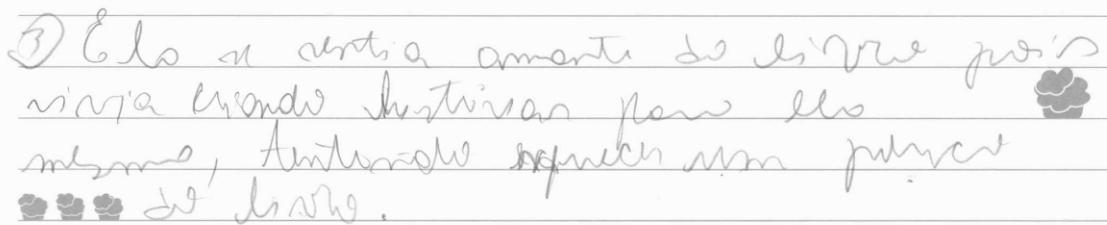 ③ Ela se sentia amante do livro pois
vivia criando histórias para ela
mesma, tentando esquecer um pouco
do livro.